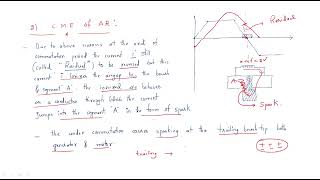 2) C M E of AR :
- Due to above reasons at the end of
commutation period the current i still
(called "Residual") to be reversed but this
current i ionises the airgap b/w the brush
& segment 'A'. the ionised air behaves
as a conductor through which the current
jumps into the segment 'A' in the form of spark.
- the under commutation causes sparking at the trailing brush tip both
generator & motor
trailing →
Residual
A
Spark.